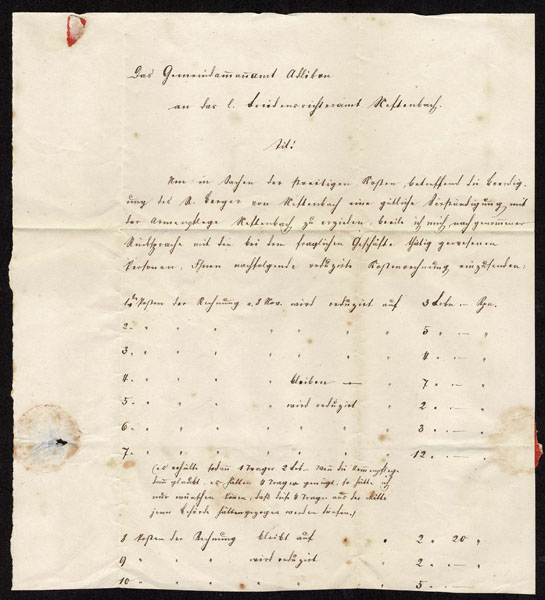 Das Gemeindammannamt Adlikon
an das l. Friedensrichteramt Neftenbach.
Tit!
Um in Sachen der streitigen Kosten, betreffend die Beerdig-
ung des K. Berger von Neftenbach eine gütliche Verständigung mit
der Armenpflege Neftenbach zu erzielen, beeile ich mich, nach genommener
Rücksprache mit den bei dem fraglichen Geschäfte thätig gewesenen
Personen, Ihnen nachfolgende reduzirte Kostenrechnung einzusenden:
1. Posten der Rechnung v. 8 Nov. wird reduzirt auf 3 Frkn — Rpn.
2. " " " " " " " 5 " — "
3. " " " " " " " 4 " — "
4. " " " " bleiben — 7 " — "
5. " " " " wird reduzirt " 2 " — "
6. " " " " " " " 3 " — "
7. " " " " " " " 12 " — "
(es erhält sodann 1 Träger 2 Frkn. Wenn die Armenpfleg
glaubt, es hätten 4 Träger genügt, so hätte ich
nur wünschen können, daß diese 4 Träger aus der Mitte
jener Behörde hätten gezogen werden können.)
8 Posten der Rechnung bleibt auf " 2 " 20 "
9 " " " " wird reduzirt " 2 " — "
10 " " " " " " 5 " — "